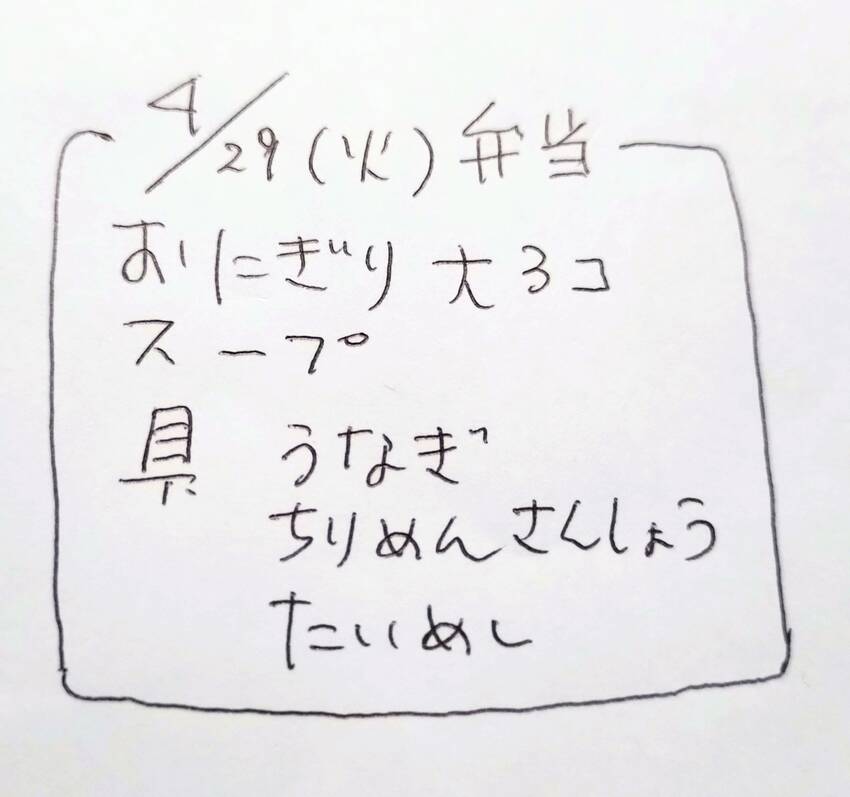 4/29(火)弁当
おにぎり 大3コ
スープ
具 うなぎ
ちりめんさんしょう
たいめし